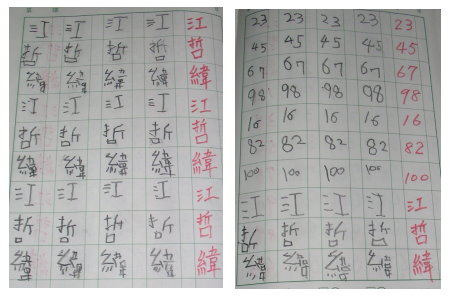 江 江 江 江 江
哲 哲 哲 哲 哲
緯 緯 緯 緯 緯
江 江 江 江 江
哲 哲 哲 哲 哲
緯 緯 緯 緯 緯
江 江 江 江 江
哲 哲 哲 哲 哲
緯 緯 緯 緯 緯
23 23 23 23 23
45 45 45 45 45
67 67 67 67 67
98 98 98 98 98
16 16 16 16 16
82 82 82 82 82
100 100 100 100 100
江 江 江 江 江
哲 哲 哲 哲 哲
緯 緯 緯 緯 緯